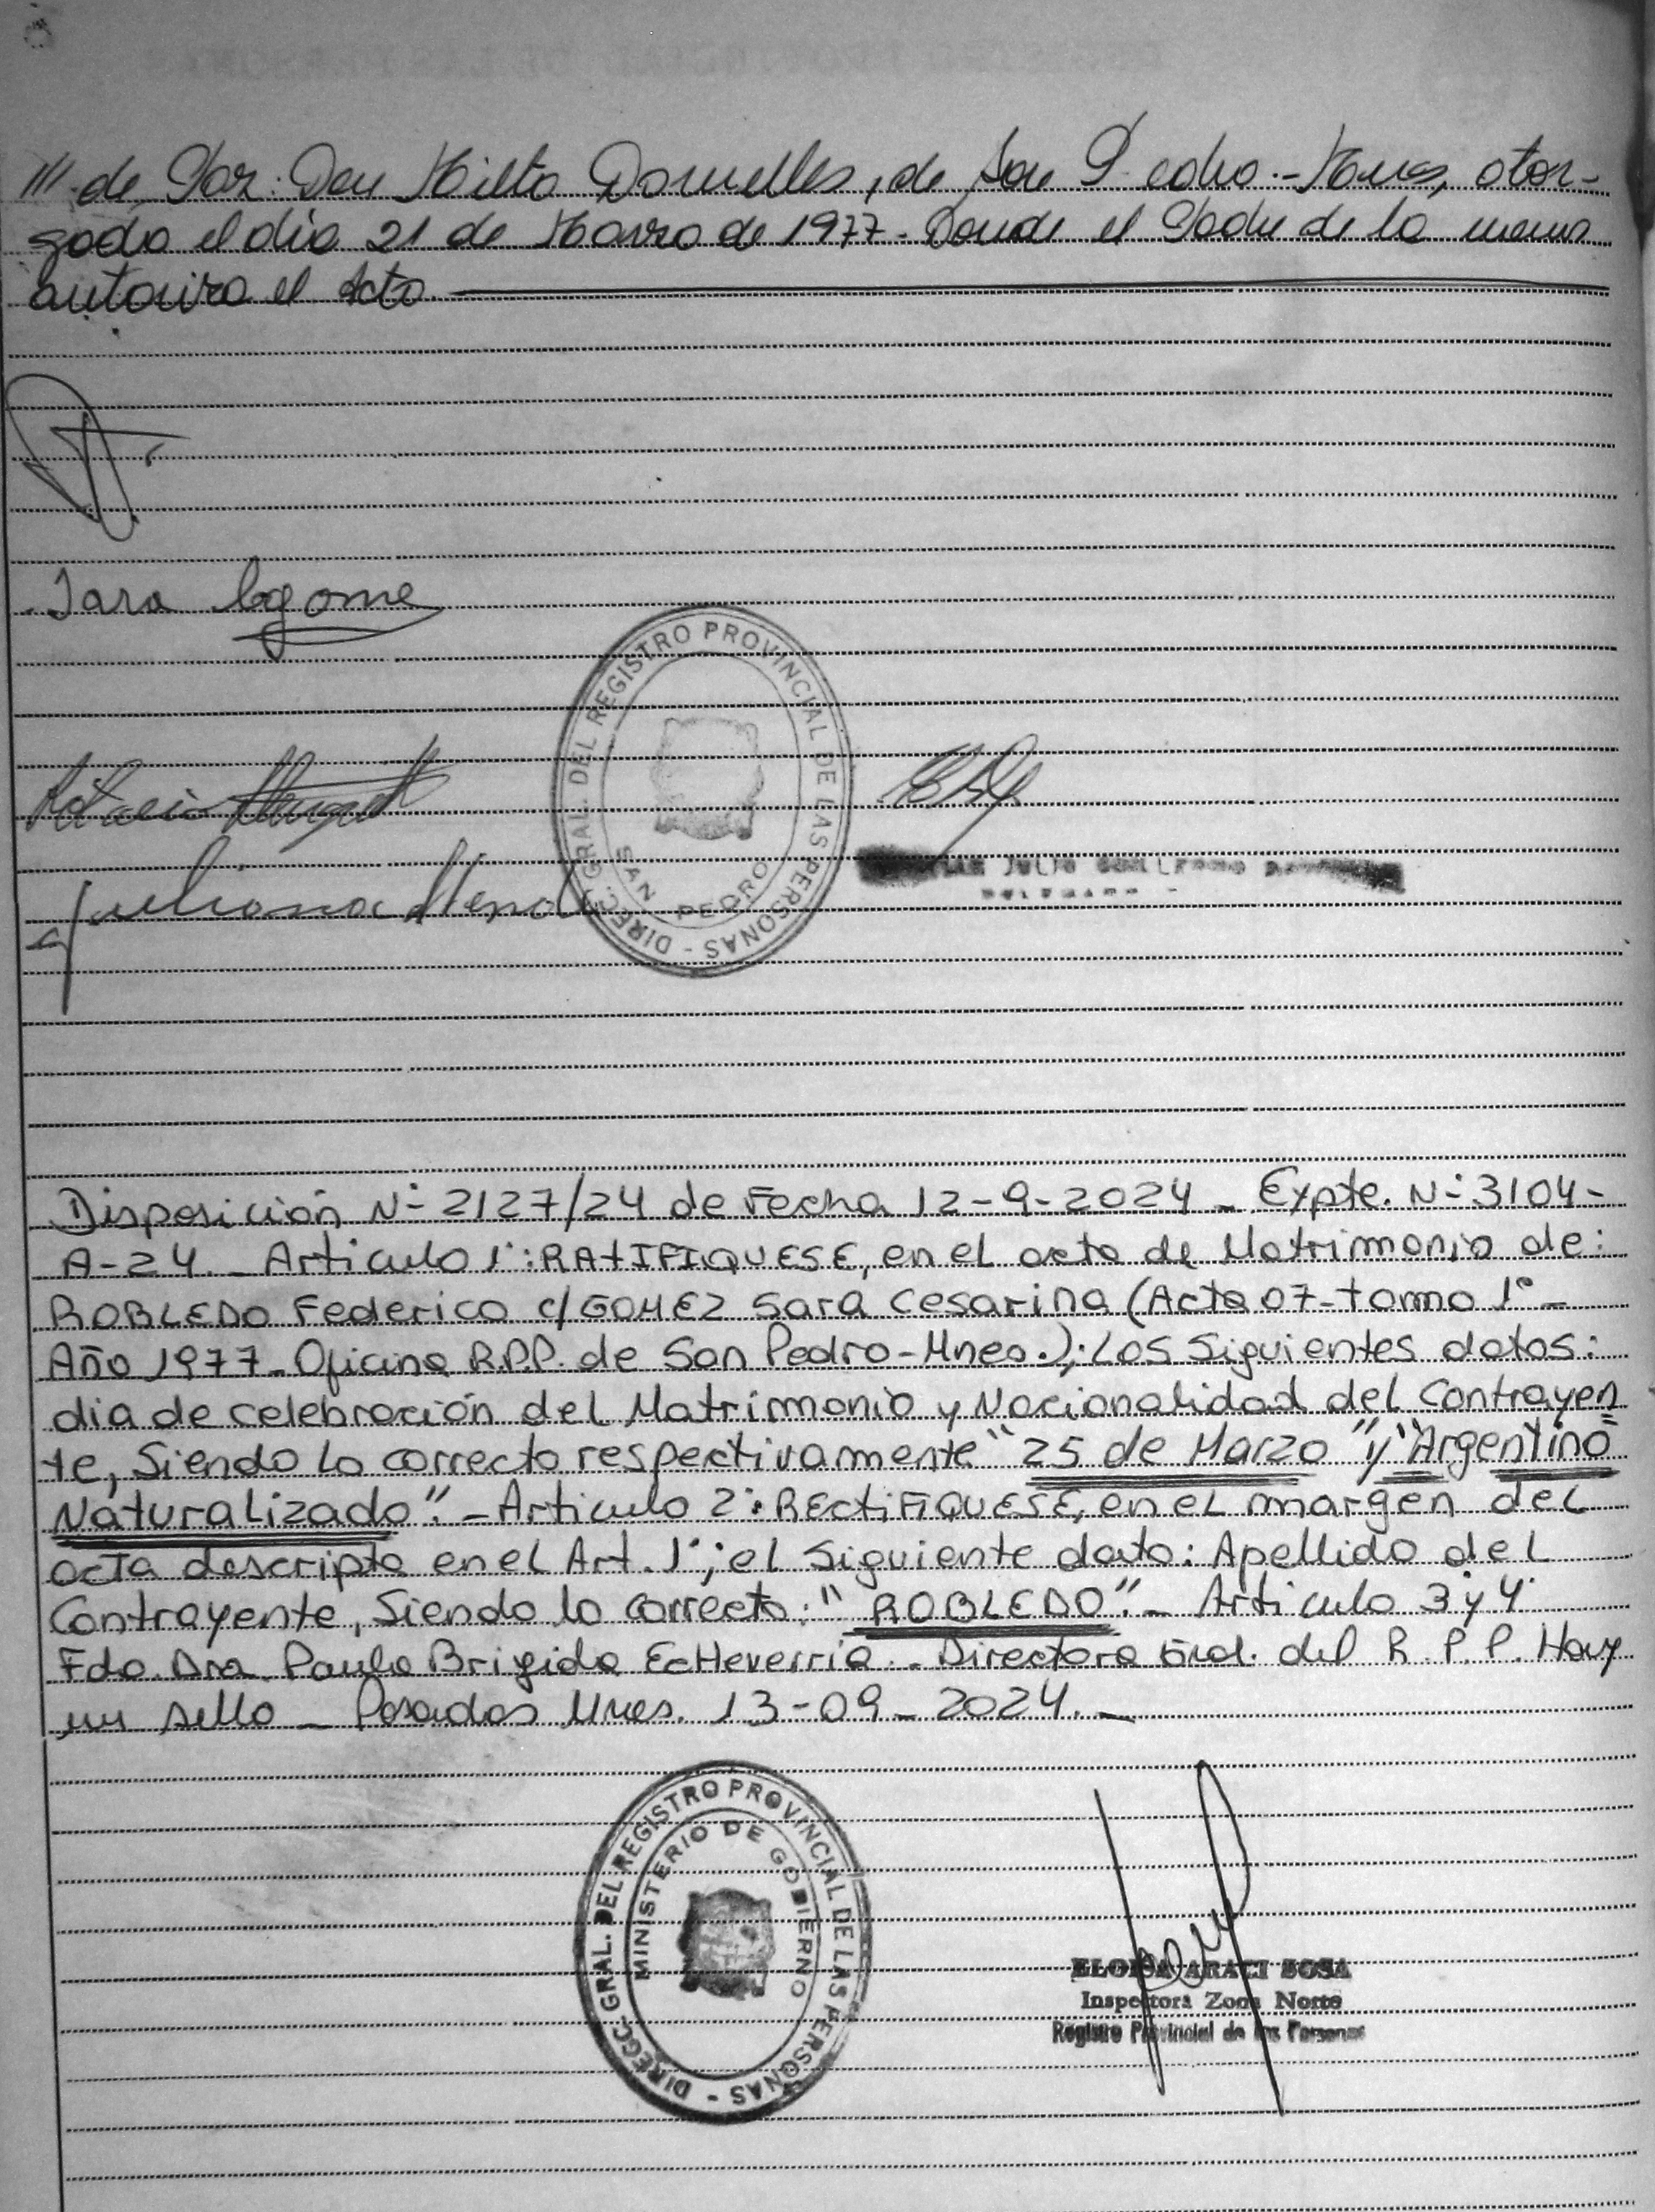 /// de Paz: Don Milto Dornelles, de San Pedro.- Mnes, otor-
gada el dia 21 de Marzo de 1977.- Donde el Padre de la misma
autoriza el Acto.
Sara C gome
Juliana
DIREC. GRAL. DEL REGISTRO PROVINCIAL DE LAS PERSONAS -
SAN PEDRO
JULIO
Disposición N- 2127/24 de Fecha 12-9-2024 - Expte. N- 3104-
A-24. - Articulo 1°: RATIFIQUESE, en el acta de Matrimonio de:
ROBLEDO Federico c/ GOMEZ Sara Cesarina (Acta 07- tomo 1° -
Año 1977- Oficina R.P.P. de San Pedro-Mnes.); Los Siguientes datos:
dia de celebración del Matrimonio y Nacionalidad del Contrayen
te, Siendo lo correcto respectivamente "25 de Marzo" y "Argentino
Naturalizado". - Articulo 2°: RECTIFIQUESE, en el margen del
acta descripta en el Art. 1°; el Siguiente dato: Apellido del
Contrayente, Siendo lo correcto: "ROBLEDO". - Articulo 3 y 4
Fdo. Dra. Paula Brigida EcHeverria. - Directora Gral. del R.P.P. Hay
un sello - Posadas Mnes. 13-09-2024. -
DIREGC. GRAL. DEL REGISTRO PROVINCIAL DE LAS PERSONAS -
MINISTERIO DE GOBIERNO
ELOISA ARACI SOSA
Inspectora Zona Norte
Registro Provincial de las Personas